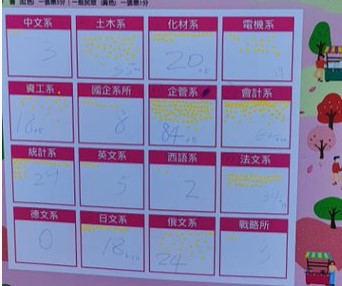 中文系 土木系 化材系 電機系
3 20
資工系 國企系所 企管系 會計系
18 8 84
統計系 英文系 西語系 法文系
24 5 2
德文系 日文系 俄文系 戰略所
0 18 24 3